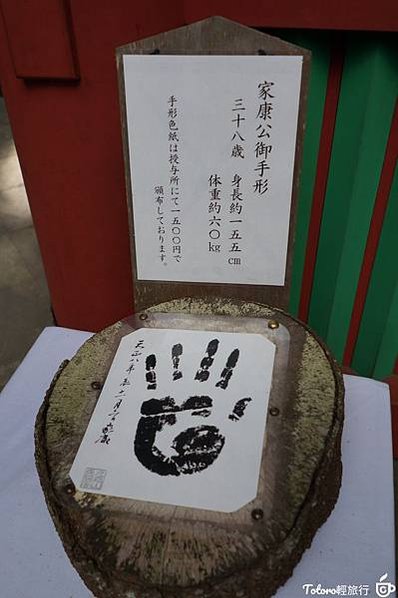 家康公御手形
三十八歳 身長約一五五cm
体重約六〇kg
手形色紙は授与所にて一五〇〇円で
頒布しております。
Totoro輕旅行